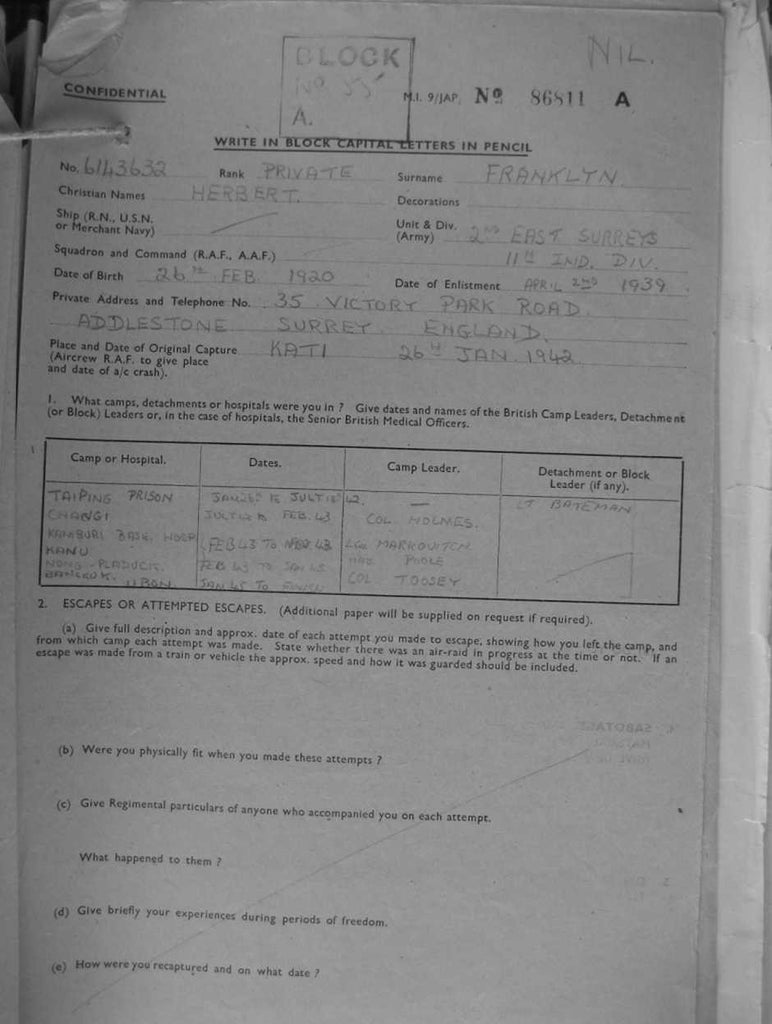 BLOCK
No 55
A.
NIL.
CONFIDENTIAL
M.I. 9/JAP. No 86811 A
WRITE IN BLOCK CAPITAL LETTERS IN PENCIL
No. 6143632 Rank PRIVATE Surname FRANKLYN.
Christian Names HERBERT. Decorations
Ship (R.N., U.S.N. or Merchant Navy)
Unit & Div. (Army) 2ND EAST SURREYS
11TH IND. DIV.
Squadron and Command (R.A.F., A.A.F.)
Date of Birth 26TH FEB 1920 Date of Enlistment APRIL 2ND 1939.
Private Address and Telephone No. 35 VICTORY PARK ROAD.
ADDLESTONE SURREY. ENGLAND.
Place and Date of Original Capture KATI 26TH JAN. 1942
(Aircrew R.A.F. to give place
and date of a/c crash).
1. What camps, detachments or hospitals were you in ? Give dates and names of the British Camp Leaders, Detachment
(or Block) Leaders or, in the case of hospitals, the Senior British Medical Officers.
Camp or Hospital. Dates. Camp Leader. Detachment or Block Leader (if any).
TAIPING PRISON JULY 42. — LT BATEMAN
CHANGI FEB. 43 COL HOLMES.
KANBURI BASE HOSP FEB 43 TO NOV 43
KANU
NONG-PLADUCK. FEB 43 TO JAN 45 POOLE
UBON. JAN 45 TO COL TOOSEY
2. ESCAPES OR ATTEMPTED ESCAPES. (Additional paper will be supplied on request if required).
(a) Give full description and approx. date of each attempt you made to escape, showing how you left the camp, and
from which camp each attempt was made. State whether there was an air-raid in progress at the time or not. If an
escape was made from a train or vehicle the approx. speed and how it was guarded should be included.
(b) Were you physically fit when you made these attempts ?
(c) Give Regimental particulars of anyone who accompanied you on each attempt.
What happened to them ?
(d) Give briefly your experiences during periods of freedom.
(e) How were you recaptured and on what date ?